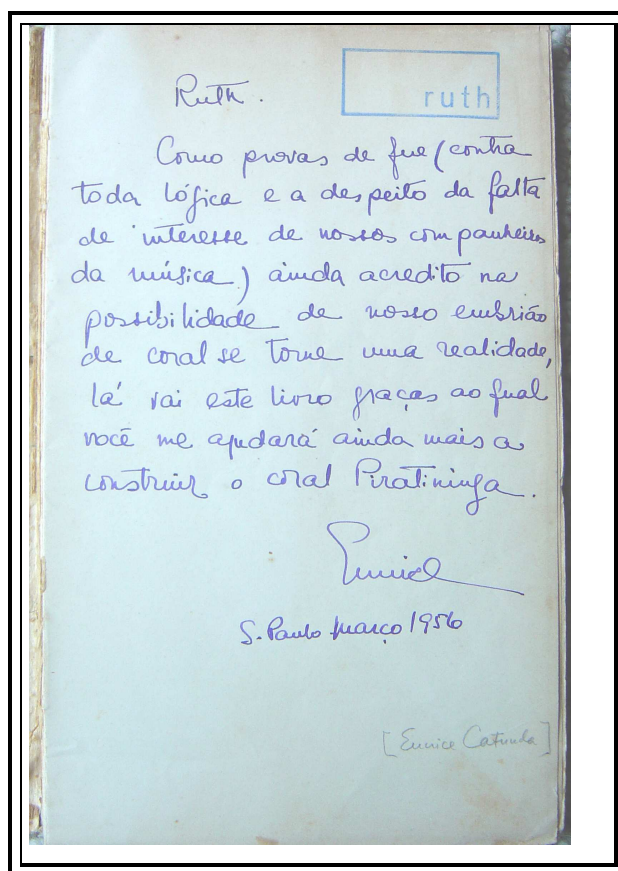 Ruth.
ruth
Como provas de que (contra
toda lógica e a despeito da falta
de interesse de nossos companheiros
da música) ainda acredito na
possibilidade de nosso embrião
de coral se torne uma realidade,
lá vai este livro graças ao qual
você me ajudará ainda mais a
construir o coral Piratininga.
Eunice
S. Paulo Março 1956
[Eunice Catunda]